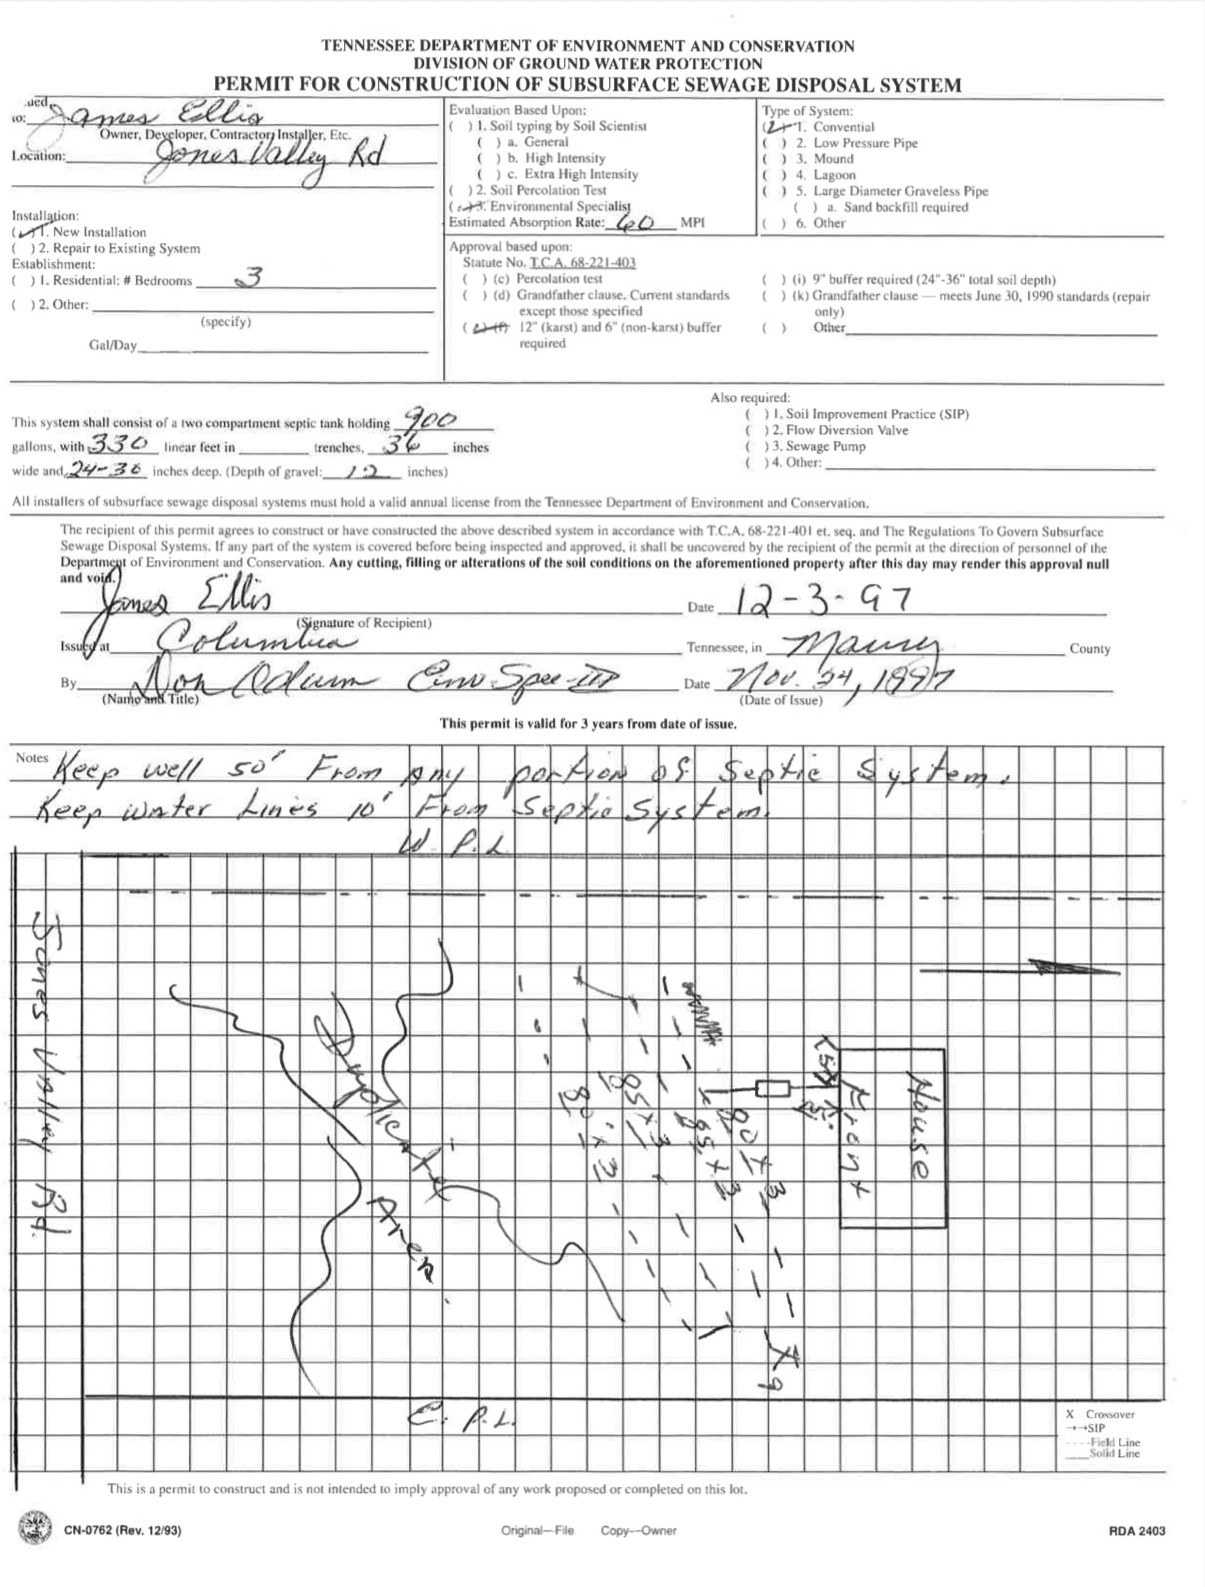 TENNESSEE DEPARTMENT OF ENVIRONMENT AND CONSERVATION
DIVISION OF GROUND WATER PROTECTION
PERMIT FOR CONSTRUCTION OF SUBSURFACE SEWAGE DISPOSAL SYSTEM
ued
to: James Ellis
Owner, Developer, Contractor, Installer, Etc.
Location: Jones Valley Rd
Installation:
( ) 1. New Installation
( ) 2. Repair to Existing System
Establishment:
( ) 1. Residential: # Bedrooms 3
( ) 2. Other:
(specify)
Gal/Day
Evaluation Based Upon:
( ) 1. Soil typing by Soil Scientist
( ) a. General
( ) b. High Intensity
( ) c. Extra High Intensity
( ) 2. Soil Percolation Test
( ) 3. Environmental Specialist
Estimated Absorption Rate: 60 MPI
Type of System:
( ) 1. Convential
( ) 2. Low Pressure Pipe
( ) 3. Mound
( ) 4. Lagoon
( ) 5. Large Diameter Graveless Pipe
( ) a. Sand backfill required
( ) 6. Other
Approval based upon:
Statute No. T.C.A. 68-221-403
( ) (c) Percolation test
( ) (d) Grandfather clause. Current standards
except those specified
( ) (f) 12" (karst) and 6" (non-karst) buffer
required
( ) (i) 9" buffer required (24"-36" total soil depth)
( ) (k) Grandfather clause — meets June 30, 1990 standards (repair
only)
( ) Other
This system shall consist of a two compartment septic tank holding 900
gallons, with 330 linear feet in trenches, 36 inches
wide and 24-36 inches deep. (Depth of gravel: 12 inches)
Also required:
( ) 1. Soil Improvement Practice (SIP)
( ) 2. Flow Diversion Valve
( ) 3. Sewage Pump
( ) 4. Other:
All installers of subsurface sewage disposal systems must hold a valid annual license from the Tennessee Department of Environment and Conservation.
The recipient of this permit agrees to construct or have constructed the above described system in accordance with T.C.A. 68-221-401 et. seq. and The Regulations To Govern Subsurface
Sewage Disposal Systems. If any part of the system is covered before being inspected and approved, it shall be uncovered by the recipient of the permit at the direction of personnel of the
Department of Environment and Conservation. Any cutting, filling or alterations of the soil conditions on the aforementioned property after this day may render this approval null
and void.
James Ellis Date 12-3-97
(Signature of Recipient)
Issued at Columbia Tennessee, in Maury County
By Don Odum Env Spec-III Date Nov. 24, 1997
(Name and Title) (Date of Issue)
This permit is valid for 3 years from date of issue.
Notes Keep well 50' From Any portion of Septic System.
Keep water Lines 10' From Septic System.
W. P.L.
Jones Valley Rd.
Duplicate
Area
80' x 3
85 x 3
85 x 3
80 x 3
Front
House
E. P.L.
X Crossover
SIP
Field Line
Solid Line
This is a permit to construct and is not intended to imply approval of any work proposed or completed on this lot.
CN-0762 (Rev. 12/93) Original—File Copy—Owner RDA 2403